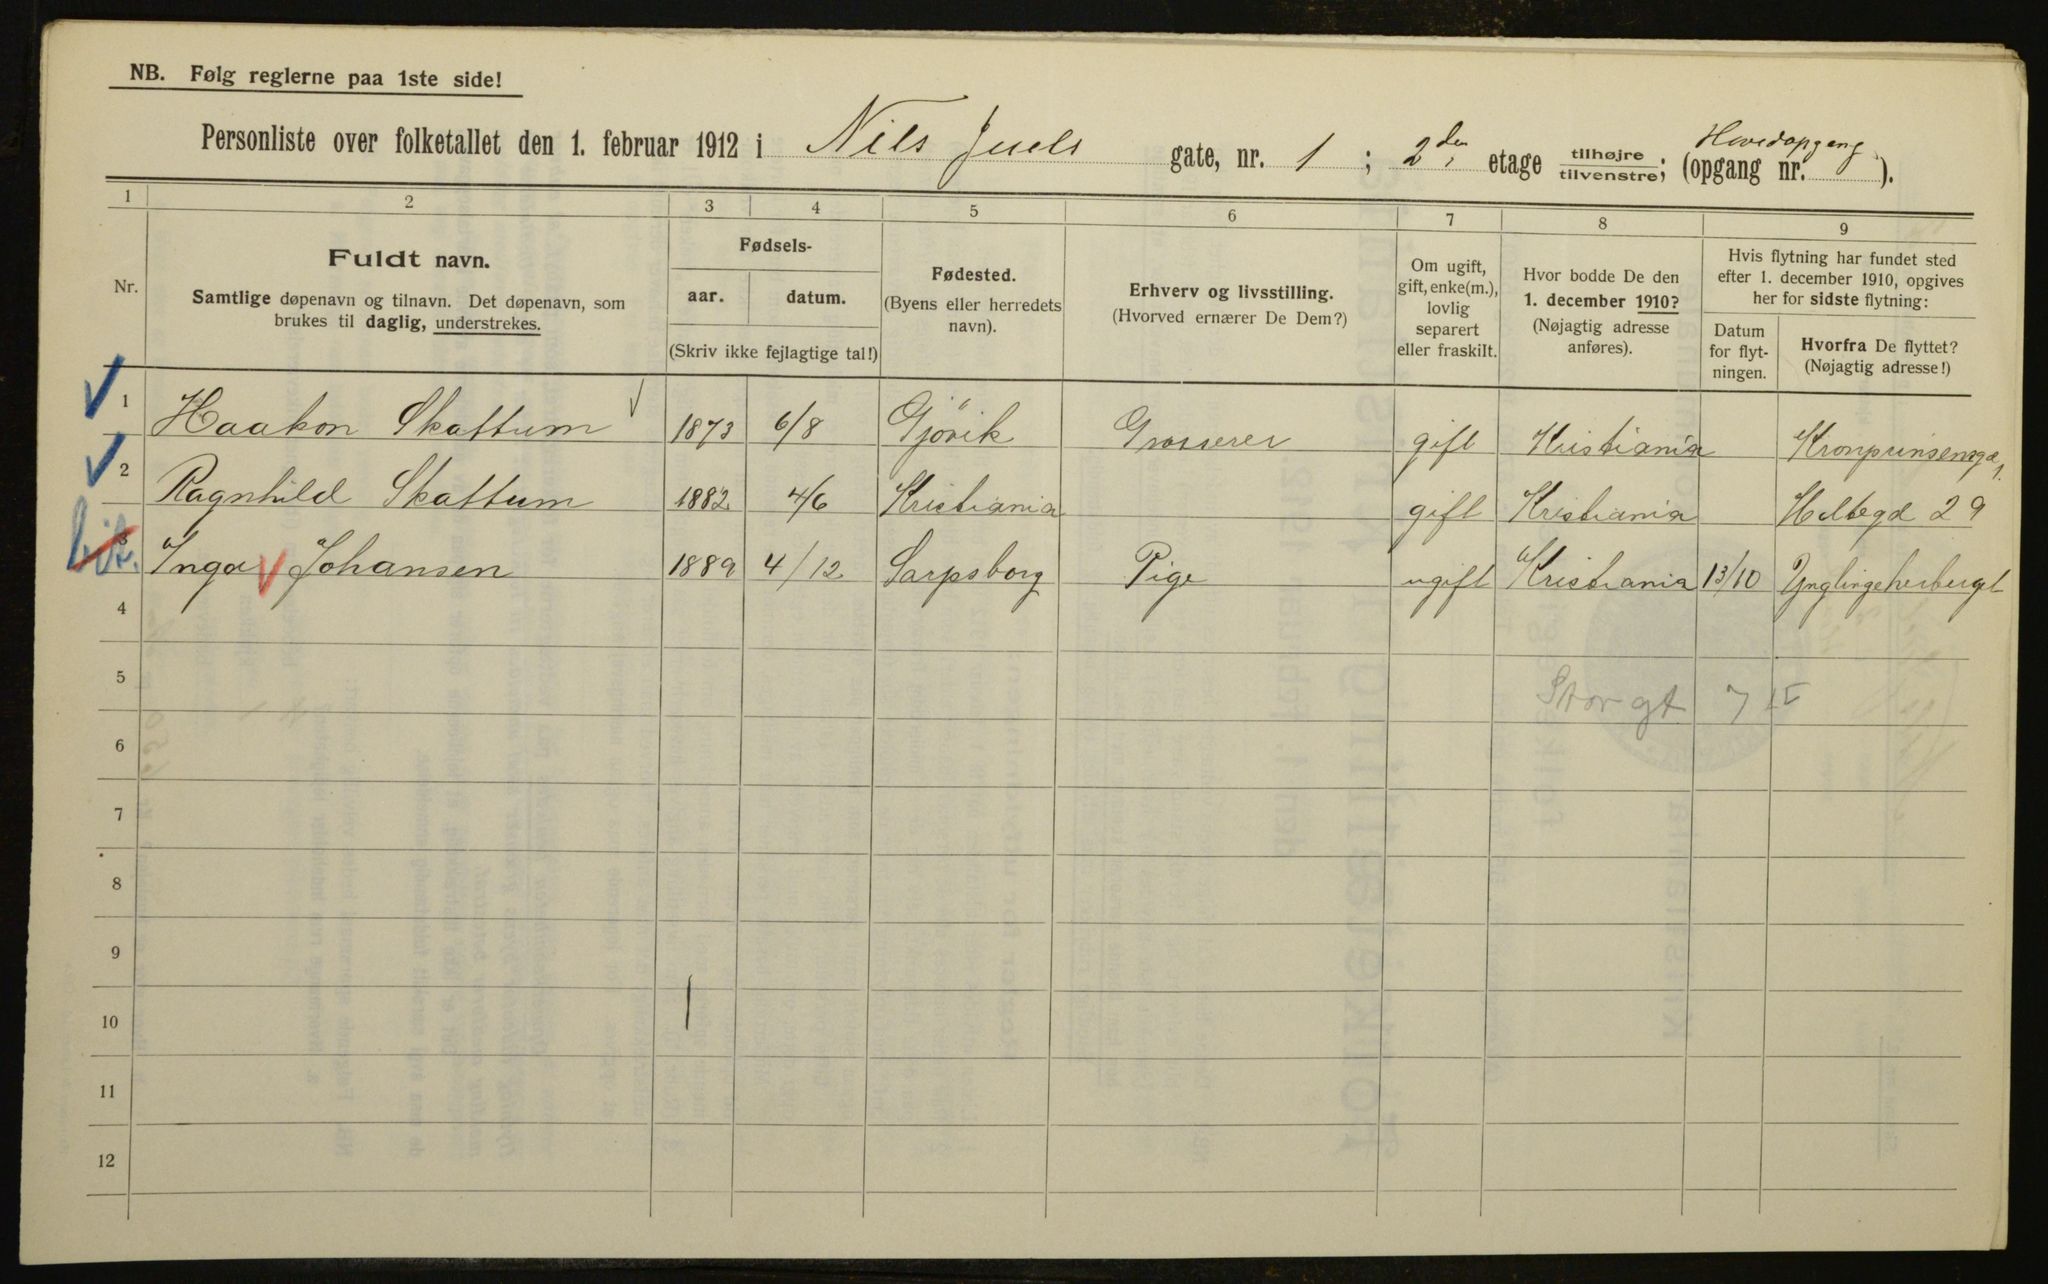 NB. Følg reglerne paa 1ste side!
Personliste over folketallet den 1. februar 1912 i Nils Juels gate, nr. 1 ; 2den etage tilhøjre tilvenstre; (opgang nr. Hovedopgang ).
1 2 3 4 5 6 7 8 9
Nr.
Fuldt navn.
Samtlige døpenavn og tilnavn. Det døpenavn, som
brukes til daglig, understrekes.
Fødsels-
aar. datum.
(Skriv ikke fejlagtige tal!)
Fødested.
(Byens eller herredets
navn).
Erhverv og livsstilling.
(Hvorved ernærer De Dem?)
Om ugift,
gift, enke(m.),
lovlig
separert
eller fraskilt.
Hvor bodde De den
1. december 1910?
(Nøjagtig adresse
anføres).
Hvis flytning har fundet sted
efter 1. december 1910, opgives
her for sidste flytning:
Datum
for flyt-
ningen.
Hvorfra De flyttet?
(Nøjagtig adresse!)
1 Haakon Skattum 1873 6/8 Gjövik Grosserer gift Kristiania Kronprinsensgd 1.
2 Ragnhild Skattum 1882 4/6 Kristiania gift Kristiania 29
3 Inga Johansen 1889 4/12 Sarpsborg Pige ugift Kristiania 13/10
4
5 Storgt 7
6
7
8
9
10
11
12